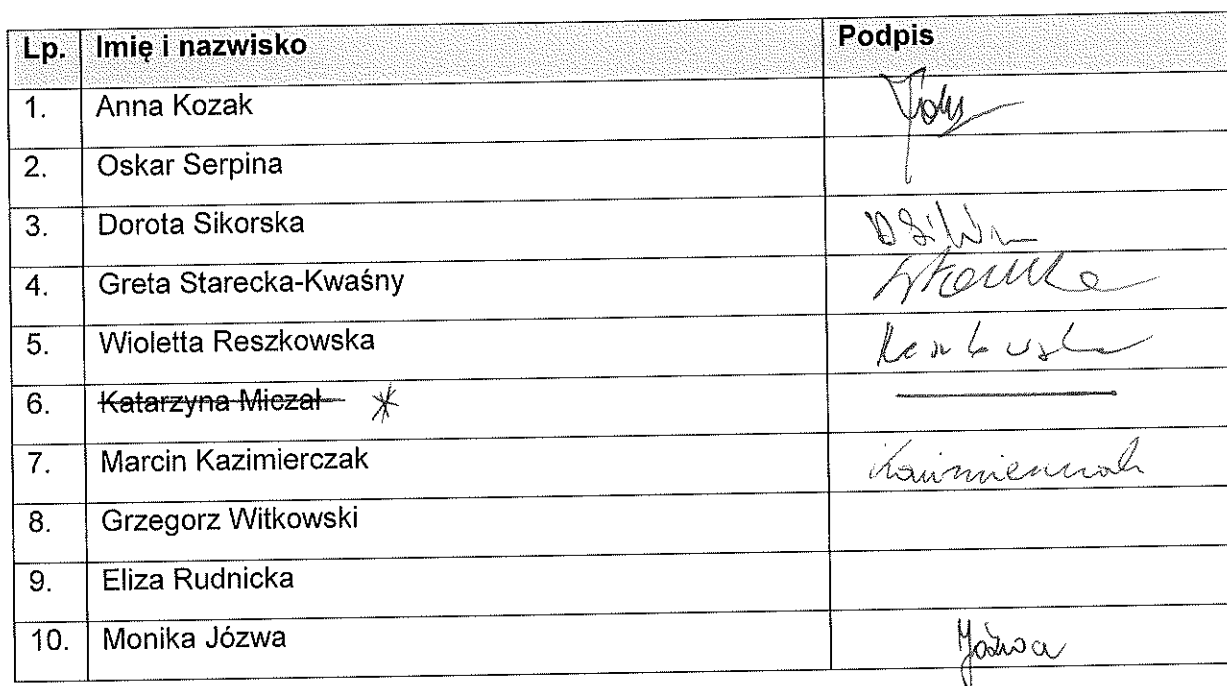 Lp. Imię i nazwisko Podpis
1. Anna Kozak
2. Oskar Serpina
3. Dorota Sikorska
4. Greta Starecka-Kwaśny
5. Wioletta Reszkowska
6. Katarzyna Miczał *
7. Marcin Kazimierczak Kazimierczak
8. Grzegorz Witkowski
9. Eliza Rudnicka
10. Monika Józwa Józwa